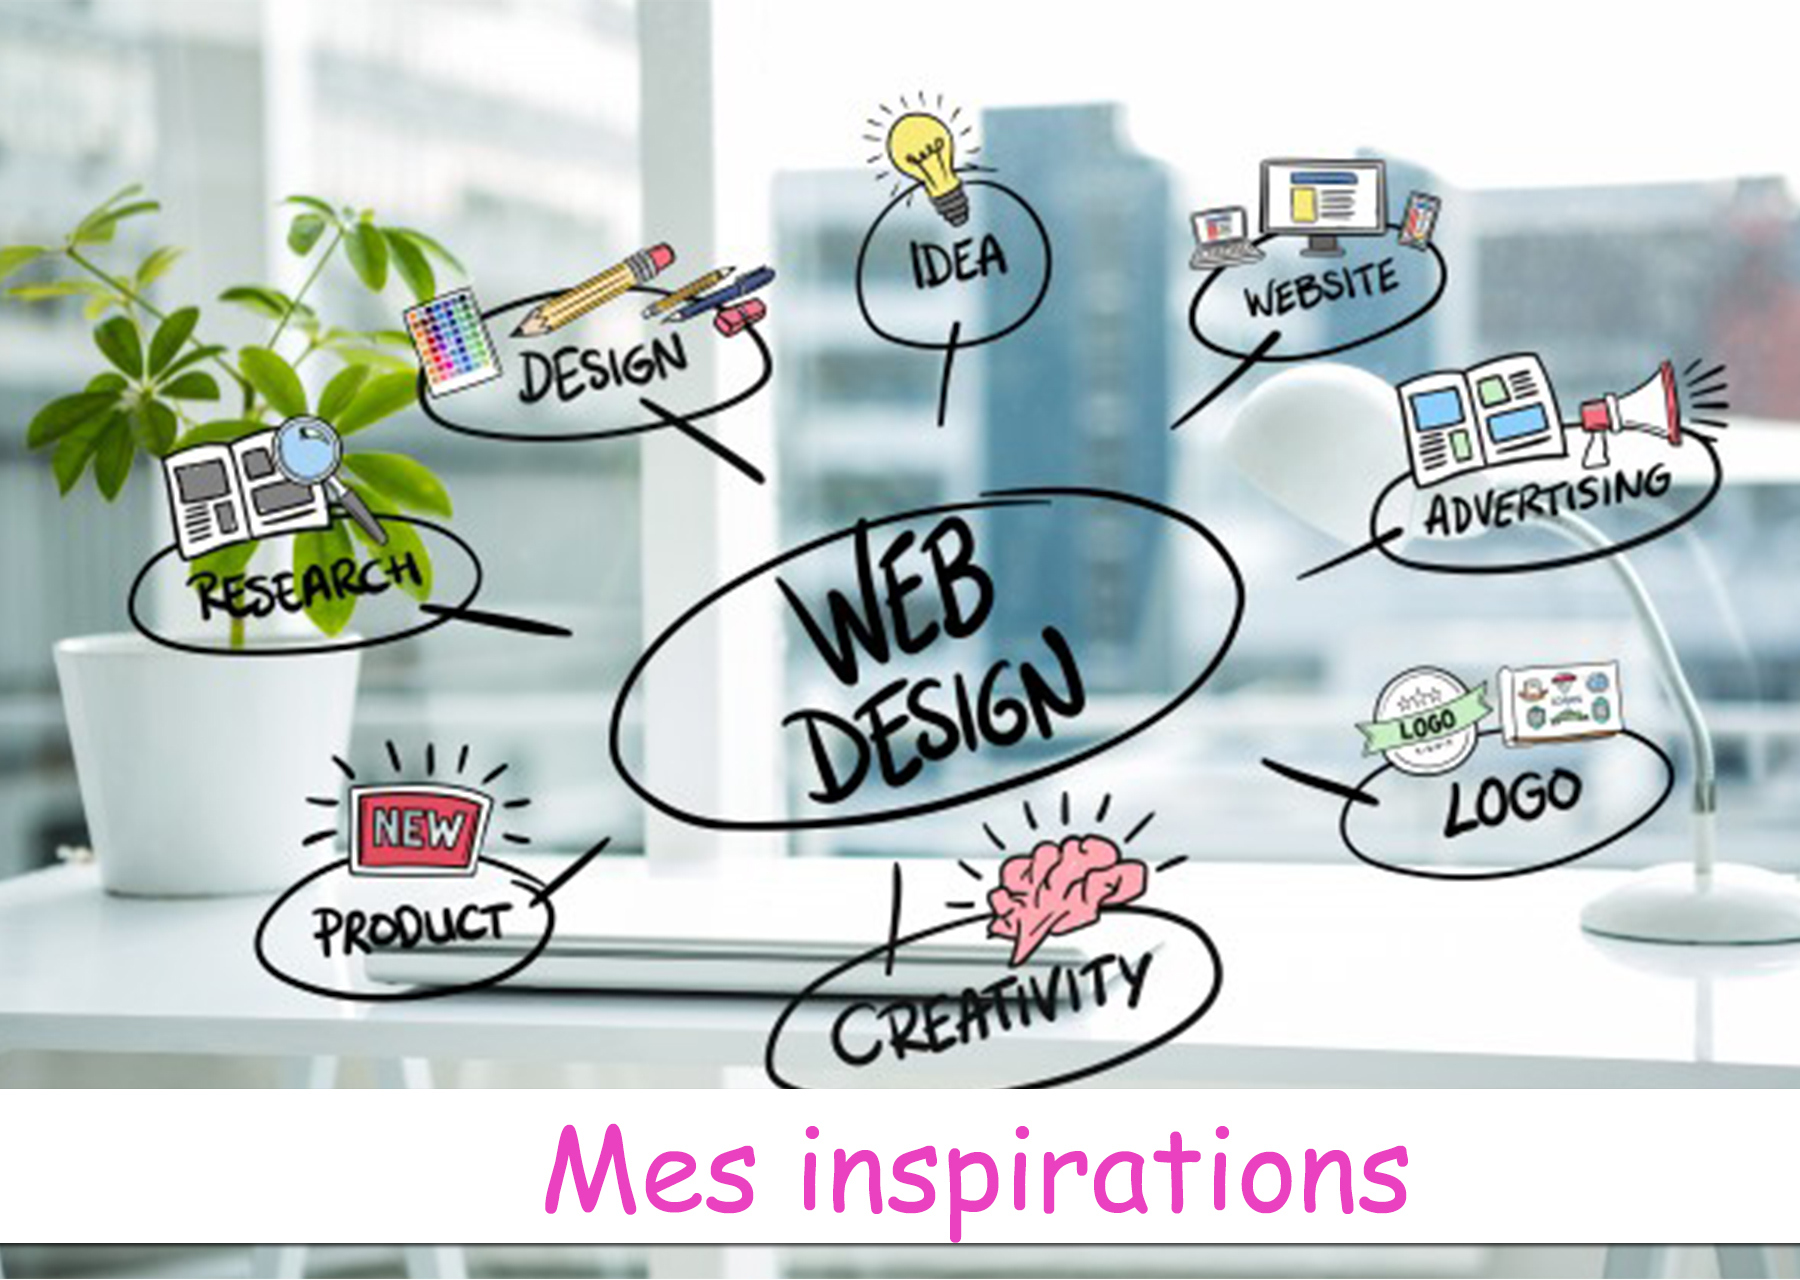 IDEA
WEBSITE
DESIGN
ADVERTISING
RESEARCH
WEB
DESIGN
LOGO
LOGO
NEW
PRODUCT
CREATIVITY
Mes inspirations